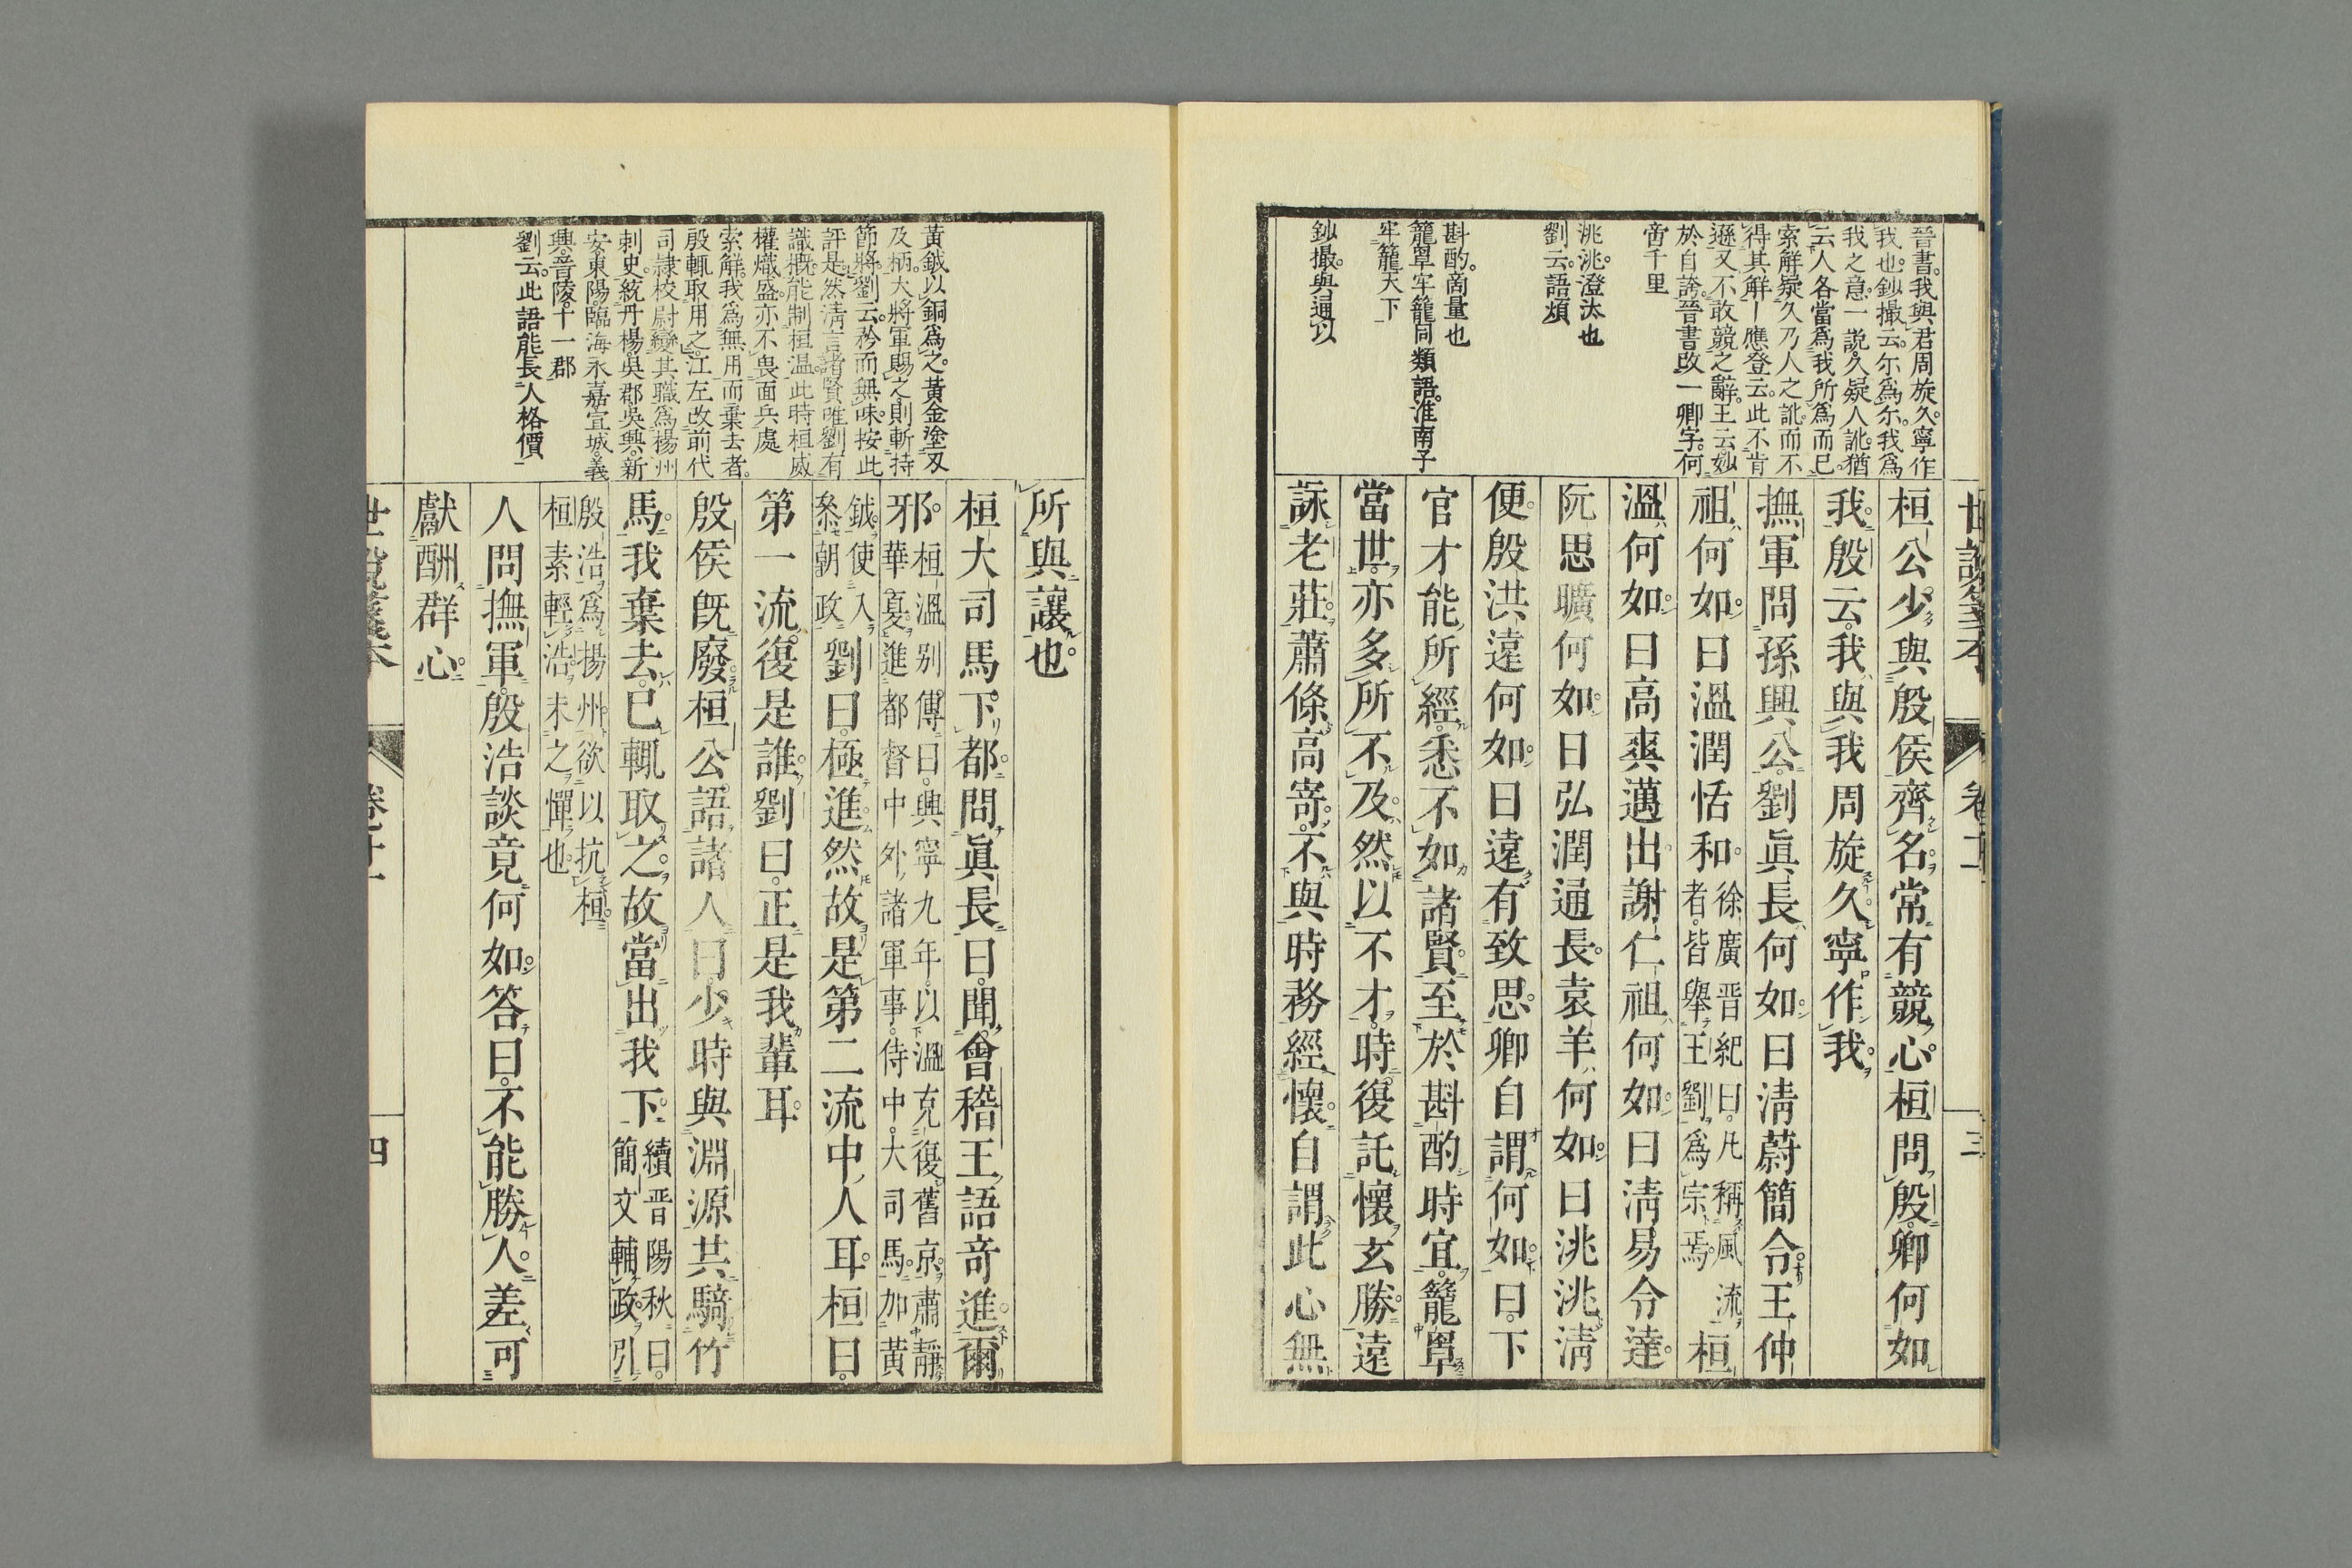 世說箋本
卷十一
三
晉書。我與君周旋久。寧作
我也。鈔撮云。尓爲尓。我爲
我之意。一說。久疑人訛。猶
云人各當爲我所爲而已。
索解疑久乃人之訛。而不
得其解。應登云。此不肯
遜又不敢競之辭。王云。妙
於自誇。晉書改一卿字。何
啻千里
洮洮。澄汰也
劉云。語煩
斟酌。啇量也
籠罩。牢籠同類語。淮南子
牢籠天下
鈔撮。與通以
桓公少與殷侯齊名。常有競心。桓問殷。卿何如
我。殷云。我與我周旋久。寧作我。
撫軍問孫興公。劉眞長何如。曰清蔚簡令。王仲
祖何如。曰溫潤恬和。
徐廣晉紀曰。凡稱風流
者。皆舉王劉爲宗焉。
桓
溫何如。曰高爽邁出。謝仁祖何如。曰清易令達。
阮思曠何如。曰弘潤通長。袁羊何如。曰洮洮清
便。殷洪遠何如。曰遠有致思。卿自謂何如。曰。下
官才能所經。悉不如諸賢。至於斟酌時宜。籠罩
當世。亦多所不及。然以不才。時復託懷玄勝。遠
詠老莊。蕭條高寄。不與時務經懷。自謂此心無
黃鉞以銅爲之。黃金塗刃
及柄。大將軍賜之。則斬持
節將。劉云。矜而無味。按此
評是。然清言諸賢唯劉有
識概。能制桓溫。此時桓威
權熾盛。亦不畏面兵處
索解。我爲無用而棄去者。
殷輒取用之。江左改前代
司隷校尉。變其職爲揚州
刺史。統丹楊。吳郡。吳興。新
安。東陽。臨海。永嘉。宣城。義
興。晉陵。十一郡
劉云。此語能長人格價
所與讓也。
桓大司馬下都。問眞長曰。聞會稽王語奇進。爾
邪。
桓溫別傳曰。興寧九年。以溫克復舊京。肅靜
華夏。進都督中外諸軍事。侍中。大司馬。加黃
鉞。使入
參朝政
劉曰。極進。然故是第二流中人耳。桓曰。
第一流復是誰。劉曰。正是我輩耳。
殷侯旣廢。桓公語諸人曰。少時與淵源共騎竹
馬。我棄去。已輒取之。故當出我下。
續晉陽秋曰。
簡文輔政。引
殷浩爲揚州。欲以抗桓。
桓素輕浩。未之憚也。
人問撫軍。殷浩談竟何如。答曰。不能勝人。差可
獻酬群心。
世說箋本
卷十一
四